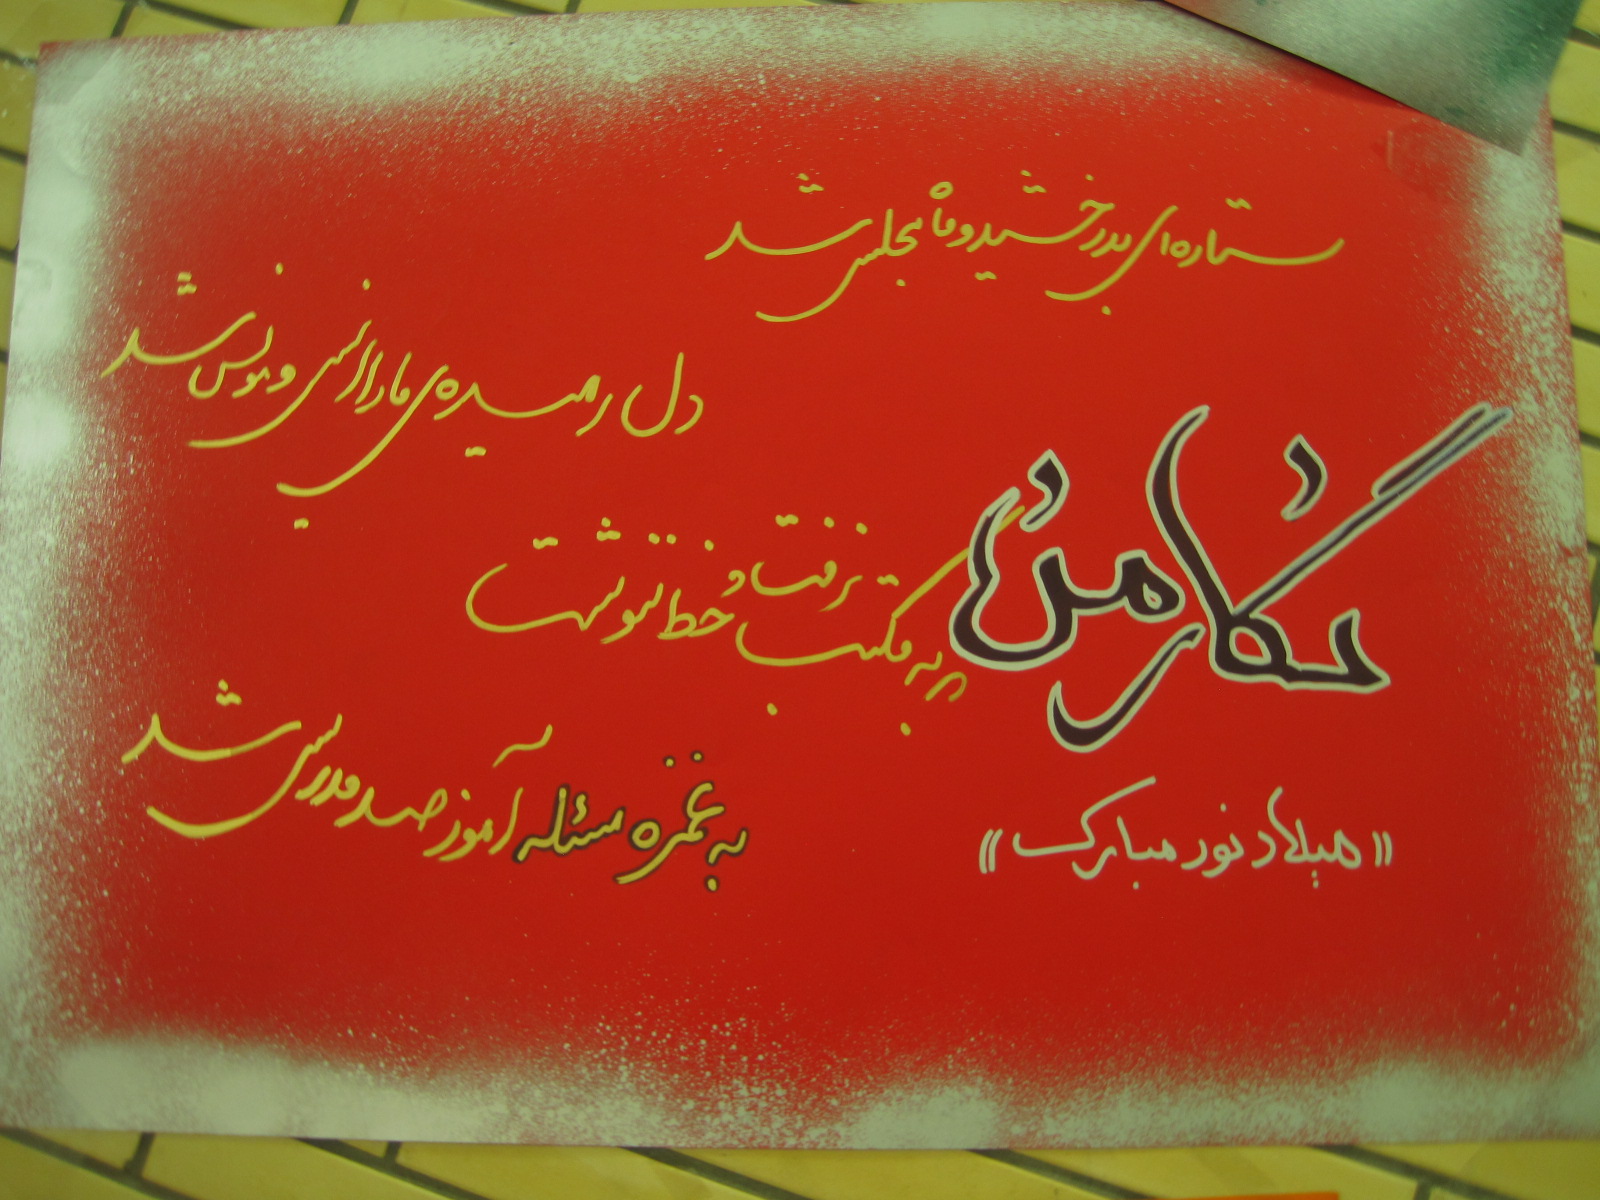 ستاره‌ای بدرخشید و ماه مجلس شد
دل رمیده‌ی ما را انیس و مونس شد
نگار من
که به مکتب نرفت و خط ننوشت
به غمزه مسئله آموز صد مدرس شد
«میلاد نور مبارک»